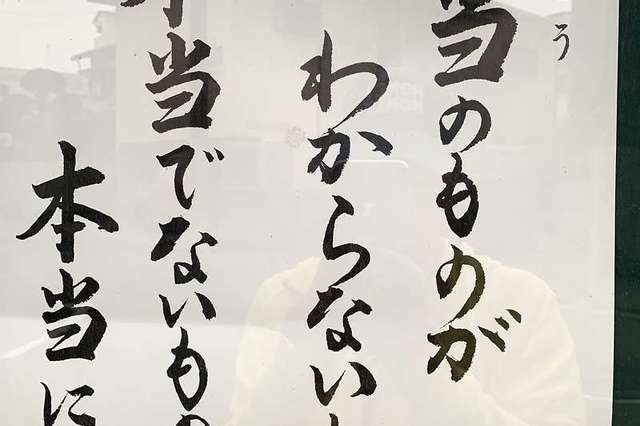 う
当のものが
わからない
本当でないもの
本当に